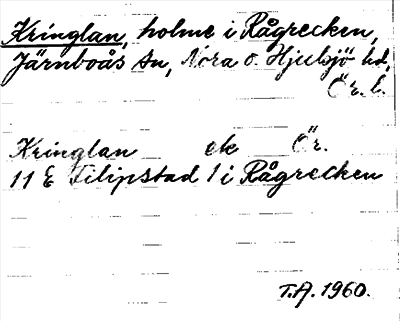 Kringlan, holme i Rågrecken,
Järnboås sn, Nora o. Hjulsjö hd,
Ör. l.
Kringlan ek Ör.
11 E Filipstad 1 i Rågrecken
T.A. 1960.